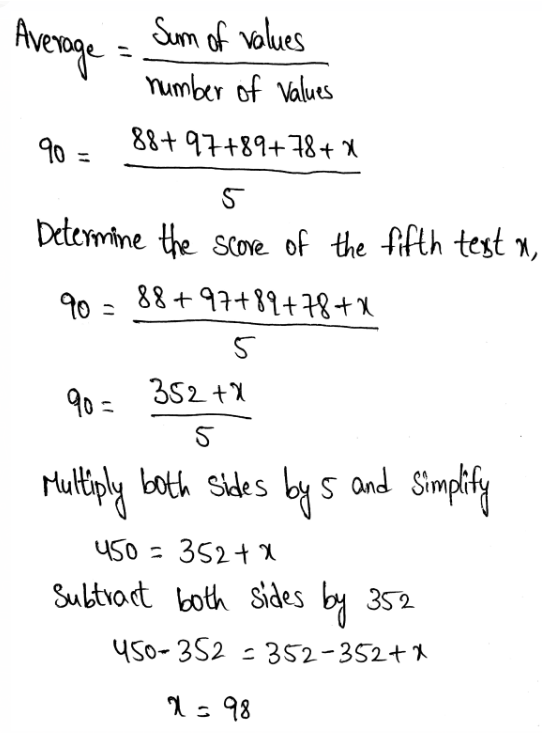 Average = Sum of values / number of values
90 = 88+97+89+78+x / 5
Determine the score of the fifth test x,
90 = 88+97+89+78+x / 5
90 = 352+x / 5
Multiply both sides by 5 and simplify
450 = 352+x
Subtract both sides by 352
450-352 = 352-352+x
x = 98